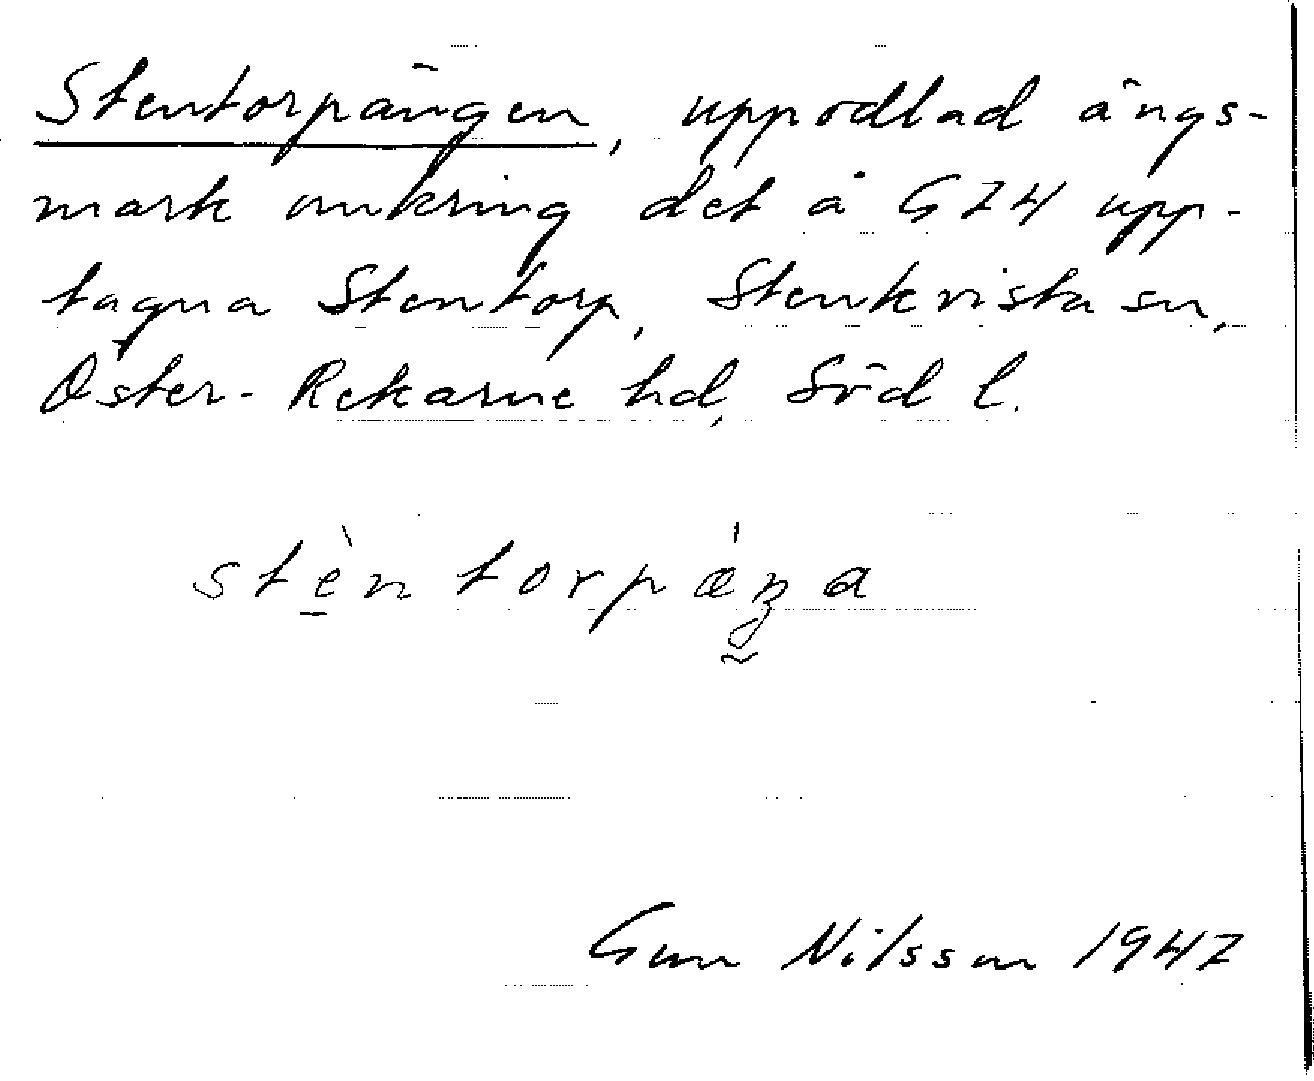 Stentorpängen, uppodlad ängs-
mark omkring det å G74 upp-
tagna Stentorp, Stenkvista sn,
Öster-Rekarne hd, Söd l.
stèn torpæŋa
Gun Nilsson 1947